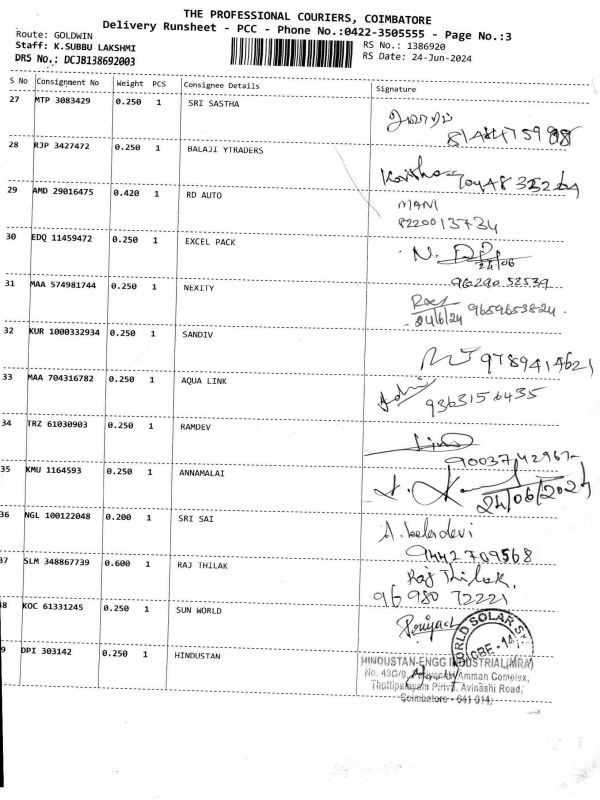 THE PROFESSIONAL COURIERS, COIMBATORE
Delivery Runsheet - PCC - Phone No.:0422-3505555 - Page No.:3
Route: GOLDWIN
Staff: K.SUBBU LAKSHMI
DRS No.: DCJB138692003
RS No.: 1386920
RS Date: 24-Jun-2024
S No Consignment No Weight PCS Consignee Details Signature
27 MTP 3083429 0.250 1 SRI SASTHA
28 RJP 3427472 0.250 1 BALAJI YTRADERS
29 AMD 29016475 0.420 1 RD AUTO MANI
8220013734
30 EDQ 11459472 0.250 1 EXCEL PACK
24/06
31 MAA 574981744 0.250 1 NEXITY
96290 52539
24/6/24 9659653824
32 KUR 1000332934 0.250 1 SANDIV
9789414621
33 MAA 704316782 0.250 1 AQUA LINK
9363156435
34 TRZ 61030903 0.250 1 RAMDEV
35 KMU 1164593 0.250 1 ANNAMALAI
24/06/2024
36 NGL 100122048 0.200 1 SRI SAI
9442709568
37 SLM 348867739 0.600 1 RAJ THILAK Raj Thilak,
96 980 72221
8 KOC 61331245 0.250 1 SUN WORLD
WORLD SOLAR SY
CBE-14
9 DPI 303142 0.250 1 HINDUSTAN
HINDUSTAN-ENGG INDUSTRIAL(MRA)
No. 43G/9, Amman Complex,
Thottipalayam Pirivu, Avinashi Road,
Coimbatore - 641 014.